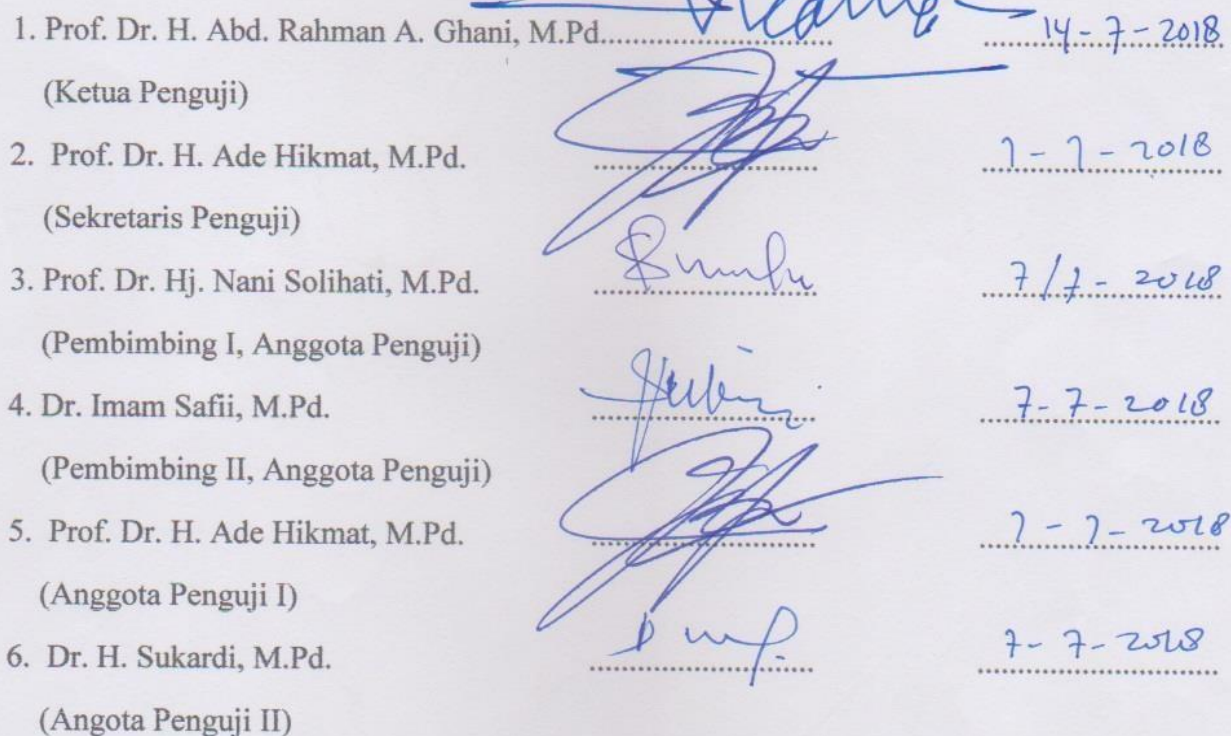 1. Prof. Dr. H. Abd. Rahman A. Ghani, M.Pd.................................... 14-7-2018
(Ketua Penguji)
2. Prof. Dr. H. Ade Hikmat, M.Pd. 7-7-2018
(Sekretaris Penguji)
3. Prof. Dr. Hj. Nani Solihati, M.Pd. 7/7-2018
(Pembimbing I, Anggota Penguji)
4. Dr. Imam Safii, M.Pd. 7-7-2018
(Pembimbing II, Anggota Penguji)
5. Prof. Dr. H. Ade Hikmat, M.Pd. 7-7-2018
(Anggota Penguji I)
6. Dr. H. Sukardi, M.Pd. 7-7-2018
(Angota Penguji II)